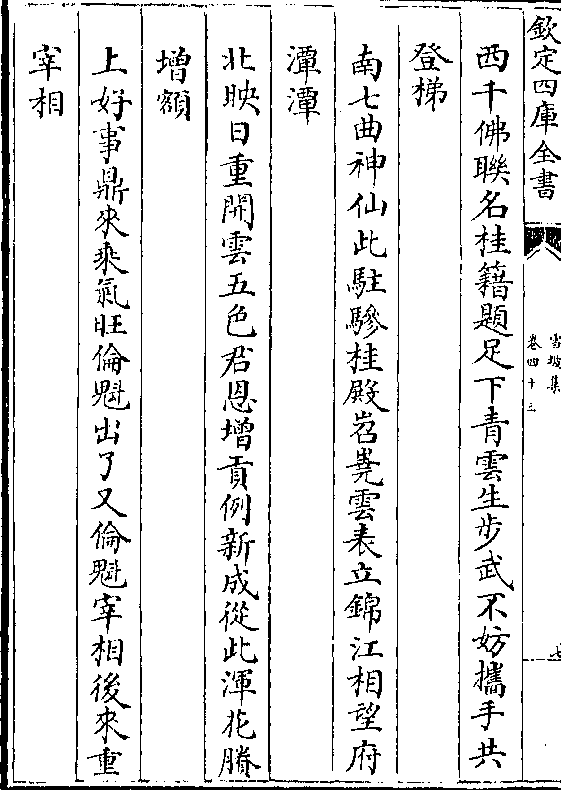 欽定四庫全書
雪坡集
卷四十三
七
西千佛聯名桂籍題足下青雲生步武不妨攜手共
登梯
南七曲神仙此駐驂桂殿岧嶤雲表立錦江相望府
潭潭
北映日重開雲五色君恩增貢例新成從此渾花牓
增額
上好事鼎來乘氣旺倫魁出了又倫魁宰相後來重
宰相